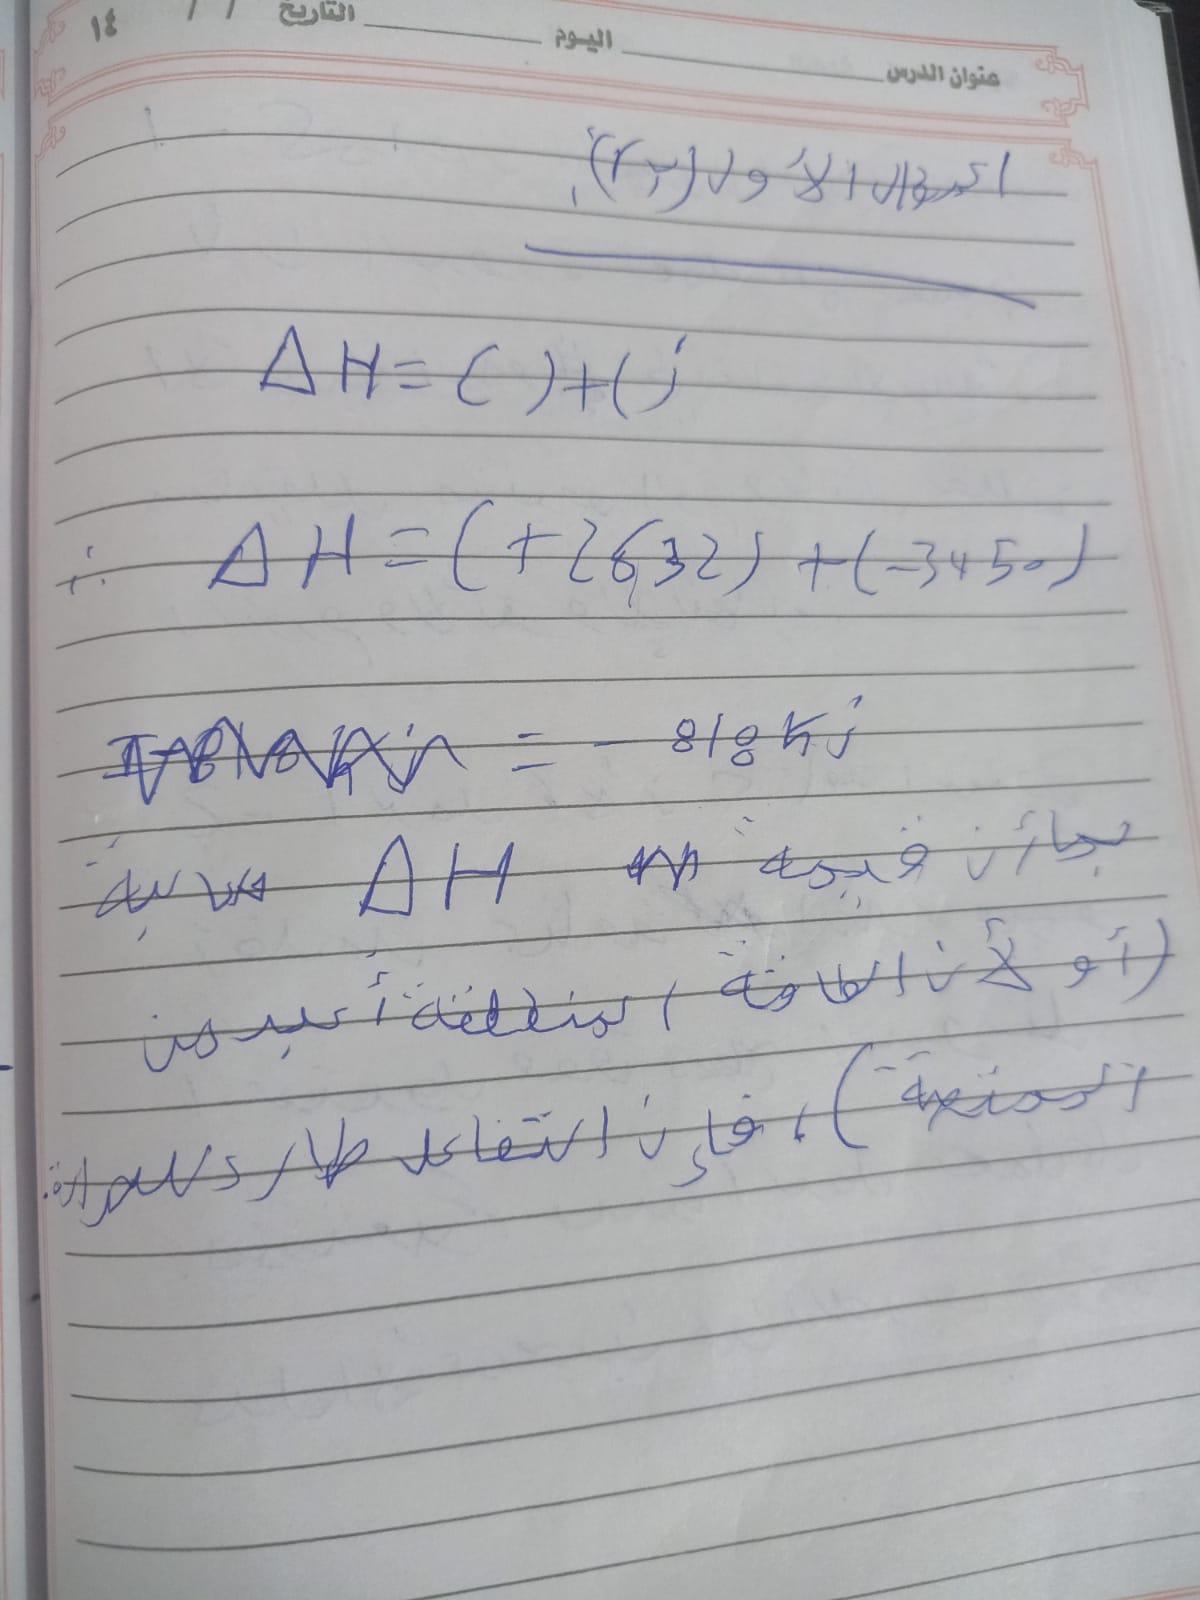 ١٤ / / التاريخ ____ اليوم ____ عنوان الدرس
السؤال الأول (٢٣):
ΔH = ( ) + ( )
∴ ΔH = (+2632) + (-3450)
= - 818 Kj
بما أن قيمة ΔH سالبة
(أو لأن الطاقة المنطلقة أكبر من
الممتصة)، فإن التفاعل طارد للحرارة.